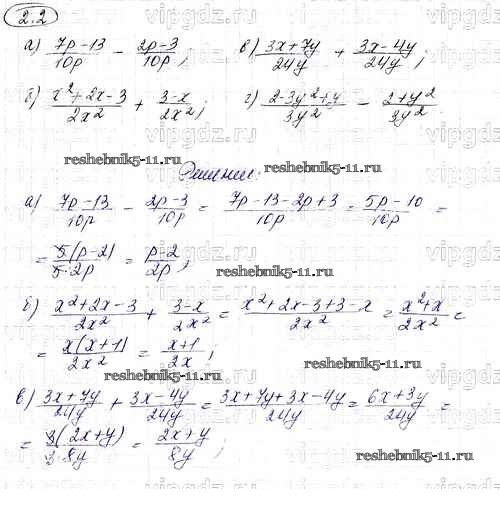 2.2
а) (7p-13)/10p - (2p-3)/10p ; в) (3x+7y)/24y + (3x-4y)/24y ;
б) (x²+2x-3)/2x² + (3-x)/2x² ; г) (2-3y²+y)/3y² - (2+y²)/3y² .
reshebnik5-11.ru reshebnik5-11.ru
Решение:
а) (7p-13)/10p - (2p-3)/10p = (7p-13-2p+3)/10p = (5p-10)/10p =
= 5(p-2)/5·2p = (p-2)/2p ;
reshebnik5-11.ru
б) (x²+2x-3)/2x² + (3-x)/2x² = (x²+2x-3+3-x)/2x² = (x²+x)/2x² =
= x(x+1)/2x² = (x+1)/2x ;
reshebnik5-11.ru
в) (3x+7y)/24y + (3x-4y)/24y = (3x+7y+3x-4y)/24y = (6x+3y)/24y =
= 3(2x+y)/3·8y = (2x+y)/8y ;
reshebnik5-11.ru
vipgdz.ru